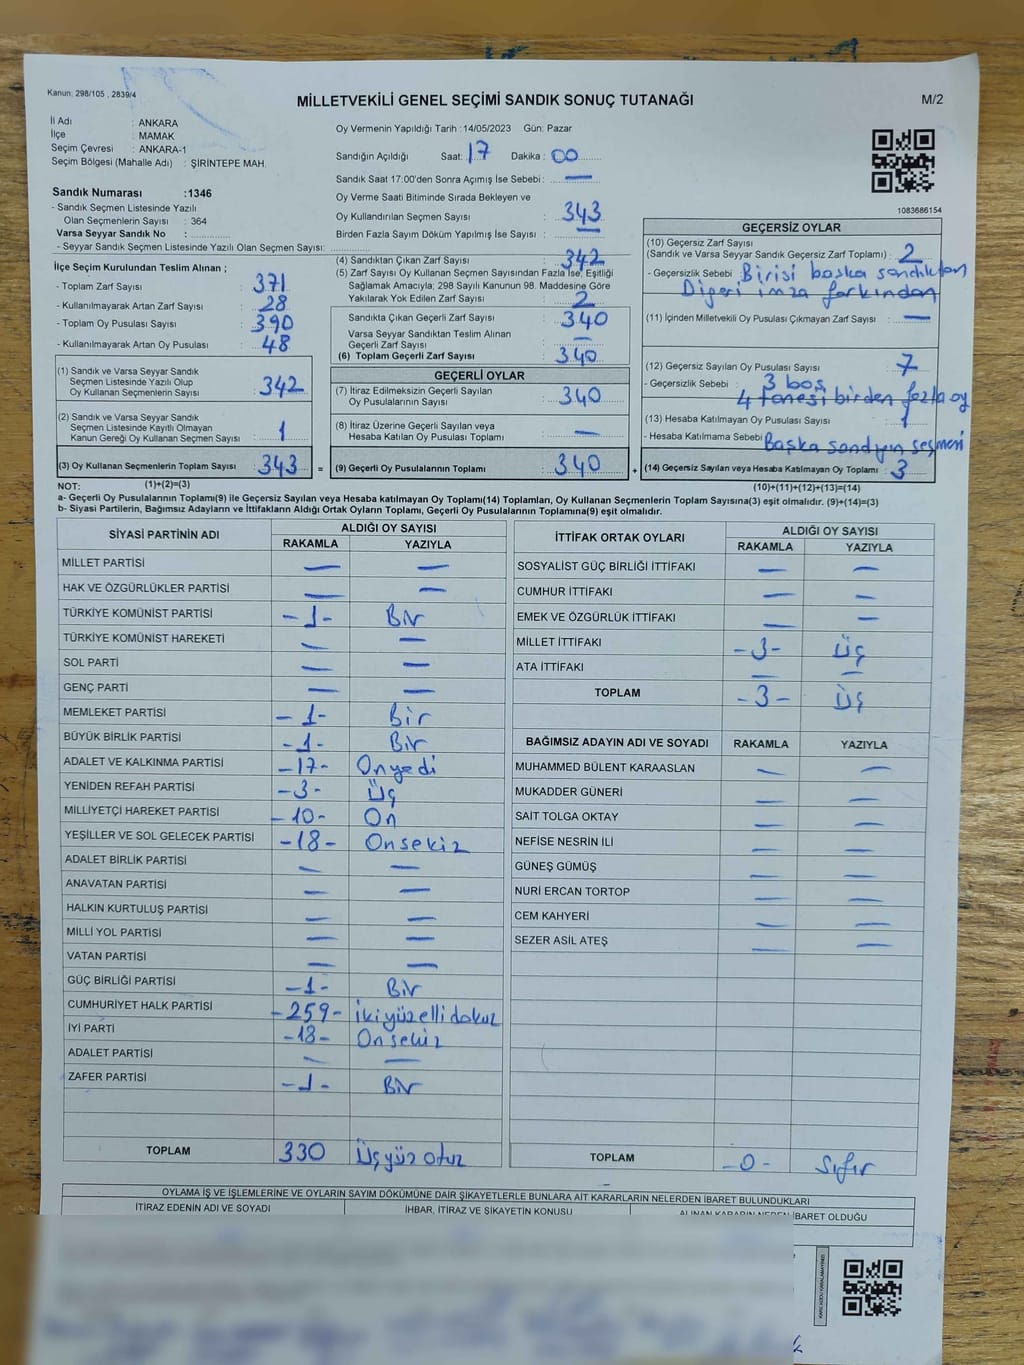 Kanun: 298/105 , 2839/4
MİLLETVEKİLİ GENEL SEÇİMİ SANDIK SONUÇ TUTANAĞI
M/2
İl Adı : ANKARA
İlçe : MAMAK
Seçim Çevresi : ANKARA-1
Seçim Bölgesi (Mahalle Adı) : ŞİRİNTEPE MAH.
Sandık Numarası :1346
- Sandık Seçmen Listesinde Yazılı
Olan Seçmenlerin Sayısı : 364
Varsa Seyyar Sandık No : ..............
- Seyyar Sandık Seçmen Listesinde Yazılı Olan Seçmen Sayısı: ..............
İlçe Seçim Kurulundan Teslim Alınan ;
- Toplam Zarf Sayısı : 371
- Kullanılmayarak Artan Zarf Sayısı : 28
- Toplam Oy Pusulası Sayısı : 390
- Kullanılmayarak Artan Oy Pusulası : 48
(1) Sandık ve Varsa Seyyar Sandık
Seçmen Listesinde Yazılı Olup
Oy Kullanan Seçmenlerin Sayısı : 342
(2) Sandık ve Varsa Seyyar Sandık
Seçmen Listesinde Kayıtlı Olmayan
Kanun Gereği Oy Kullanan Seçmen Sayısı : 1
(3) Oy Kullanan Seçmenlerin Toplam Sayısı : 343
(1)+(2)=(3)
Oy Vermenin Yapıldığı Tarih :14/05/2023 Gün: Pazar
Sandığın Açıldığı Saat: 17 Dakika : 00
Sandık Saat 17:00'den Sonra Açımış İse Sebebi : —
Oy Verme Saati Bitiminde Sırada Bekleyen ve
Oy Kullandırılan Seçmen Sayısı : 343
Birden Fazla Sayım Döküm Yapılmış İse Sayısı : —
(4) Sandıktan Çıkan Zarf Sayısı : 342
(5) Zarf Sayısı Oy Kullanan Seçmen Sayısından Fazla İse, Eşitliği
Sağlamak Amacıyla; 298 Sayılı Kanunun 98. Maddesine Göre
Yakılarak Yok Edilen Zarf Sayısı : 2
Sandıkta Çıkan Geçerli Zarf Sayısı : 340
Varsa Seyyar Sandıktan Teslim Alınan
Geçerli Zarf Sayısı : —
(6) Toplam Geçerli Zarf Sayısı : 340
GEÇERLİ OYLAR
(7) İtiraz Edilmeksizin Geçerli Sayılan
Oy Pusulalarının Sayısı : 340
(8) İtiraz Üzerine Geçerli Sayılan veya
Hesaba Katılan Oy Pusulası Toplamı : —
= (9) Geçerli Oy Pusulalarının Toplamı : 340
1083686154
GEÇERSİZ OYLAR
(10) Geçersiz Zarf Sayısı
(Sandık ve Varsa Seyyar Sandık Geçersiz Zarf Toplamı) : 2
- Geçersizlik Sebebi : Birisi başka sandıktan
Diğeri imza farkından
(11) İçinden Milletvekili Oy Pusulası Çıkmayan Zarf Sayısı : —
(12) Geçersiz Sayılan Oy Pusulası Sayısı : 7
- Geçersizlik Sebebi : 3 boş
4 tanesi birden fazla oy
(13) Hesaba Katılmayan Oy Pusulası Sayısı : 1
- Hesaba Katılmama Sebebi : Başka sandığın seçmeni
+ (14) Geçersiz Sayılan veya Hesaba Katılmayan Oy Toplamı : 3
(10)+(11)+(12)+(13)=(14)
NOT:
a- Geçerli Oy Pusulalarının Toplamı(9) ile Geçersiz Sayılan veya Hesaba katılmayan Oy Toplamı(14) Toplamları, Oy Kullanan Seçmenlerin Toplam Sayısına(3) eşit olmalıdır. (9)+(14)=(3)
b- Siyasi Partilerin, Bağımsız Adayların ve İttifakların Aldığı Ortak Oyların Toplamı, Geçerli Oy Pusulalarının Toplamına(9) eşit olmalıdır.
SİYASİ PARTİNİN ADI ALDIĞI OY SAYISI
RAKAMLA YAZIYLA
MİLLET PARTİSİ — —
HAK VE ÖZGÜRLÜKLER PARTİSİ — —
TÜRKİYE KOMÜNİST PARTİSİ -1- Bir
TÜRKİYE KOMÜNİST HAREKETİ — —
SOL PARTİ — —
GENÇ PARTİ — —
MEMLEKET PARTİSİ -1- Bir
BÜYÜK BİRLİK PARTİSİ -1- Bir
ADALET VE KALKINMA PARTİSİ -17- Onyedi
YENİDEN REFAH PARTİSİ -3- Üç
MİLLİYETÇİ HAREKET PARTİSİ -10- On
YEŞİLLER VE SOL GELECEK PARTİSİ -18- Onsekiz
ADALET BİRLİK PARTİSİ — —
ANAVATAN PARTİSİ — —
HALKIN KURTULUŞ PARTİSİ — —
MİLLİ YOL PARTİSİ — —
VATAN PARTİSİ — —
GÜÇ BİRLİĞİ PARTİSİ -1- Bir
CUMHURİYET HALK PARTİSİ -259- İkiyüzellidokuz
İYİ PARTİ -18- Onsekiz
ADALET PARTİSİ — —
ZAFER PARTİSİ -1- Bir
TOPLAM 330 Üçyüz otuz
İTTİFAK ORTAK OYLARI ALDIĞI OY SAYISI
RAKAMLA YAZIYLA
SOSYALİST GÜÇ BİRLİĞİ İTTİFAKI — —
CUMHUR İTTİFAKI — —
EMEK VE ÖZGÜRLÜK İTTİFAKI — —
MİLLET İTTİFAKI -3- Üç
ATA İTTİFAKI — —
TOPLAM -3- Üç
BAĞIMSIZ ADAYIN ADI VE SOYADI RAKAMLA YAZIYLA
MUHAMMED BÜLENT KARAASLAN — —
MUKADDER GÜNERİ — —
SAİT TOLGA OKTAY — —
NEFİSE NESRİN İLİ — —
GÜNEŞ GÜMÜŞ — —
NURİ ERCAN TORTOP — —
CEM KAHYERİ — —
SEZER ASİL ATEŞ — —
TOPLAM -0- Sıfır
OYLAMA İŞ VE İŞLEMLERİNE VE OYLARIN SAYIM DÖKÜMÜNE DAİR ŞİKAYETLERLE BUNLARA AİT KARARLARIN NELERDEN İBARET BULUNDUKLARI
İTİRAZ EDENİN ADI VE SOYADI İHBAR, İTİRAZ VE ŞİKAYETİN KONUSU ALINAN KARARIN NEDEN İBARET OLDUĞU